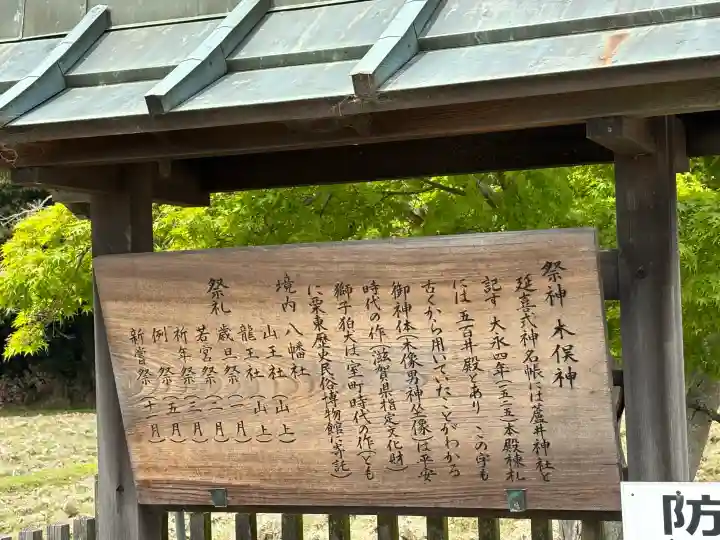 祭神 木俣神
延喜式神名帳には蘆井神社と
記す 大永四年(一五二五)本殿棟札
には 五百井殿とあり この字も
古くから用いていたことがわかる
御神体(木像男神坐像)は平安
時代の作(滋賀県指定文化財)
獅子狛犬は室町時代の作(とも
に栗東歴史民俗博物館に寄託)
境内 八幡社
山王社(山上)
龍王社(山上)
祭礼 歳旦祭(一月)
若宮祭(三月)
祈年祭(三月)
例祭(五月)
新嘗祭(十一月)
防